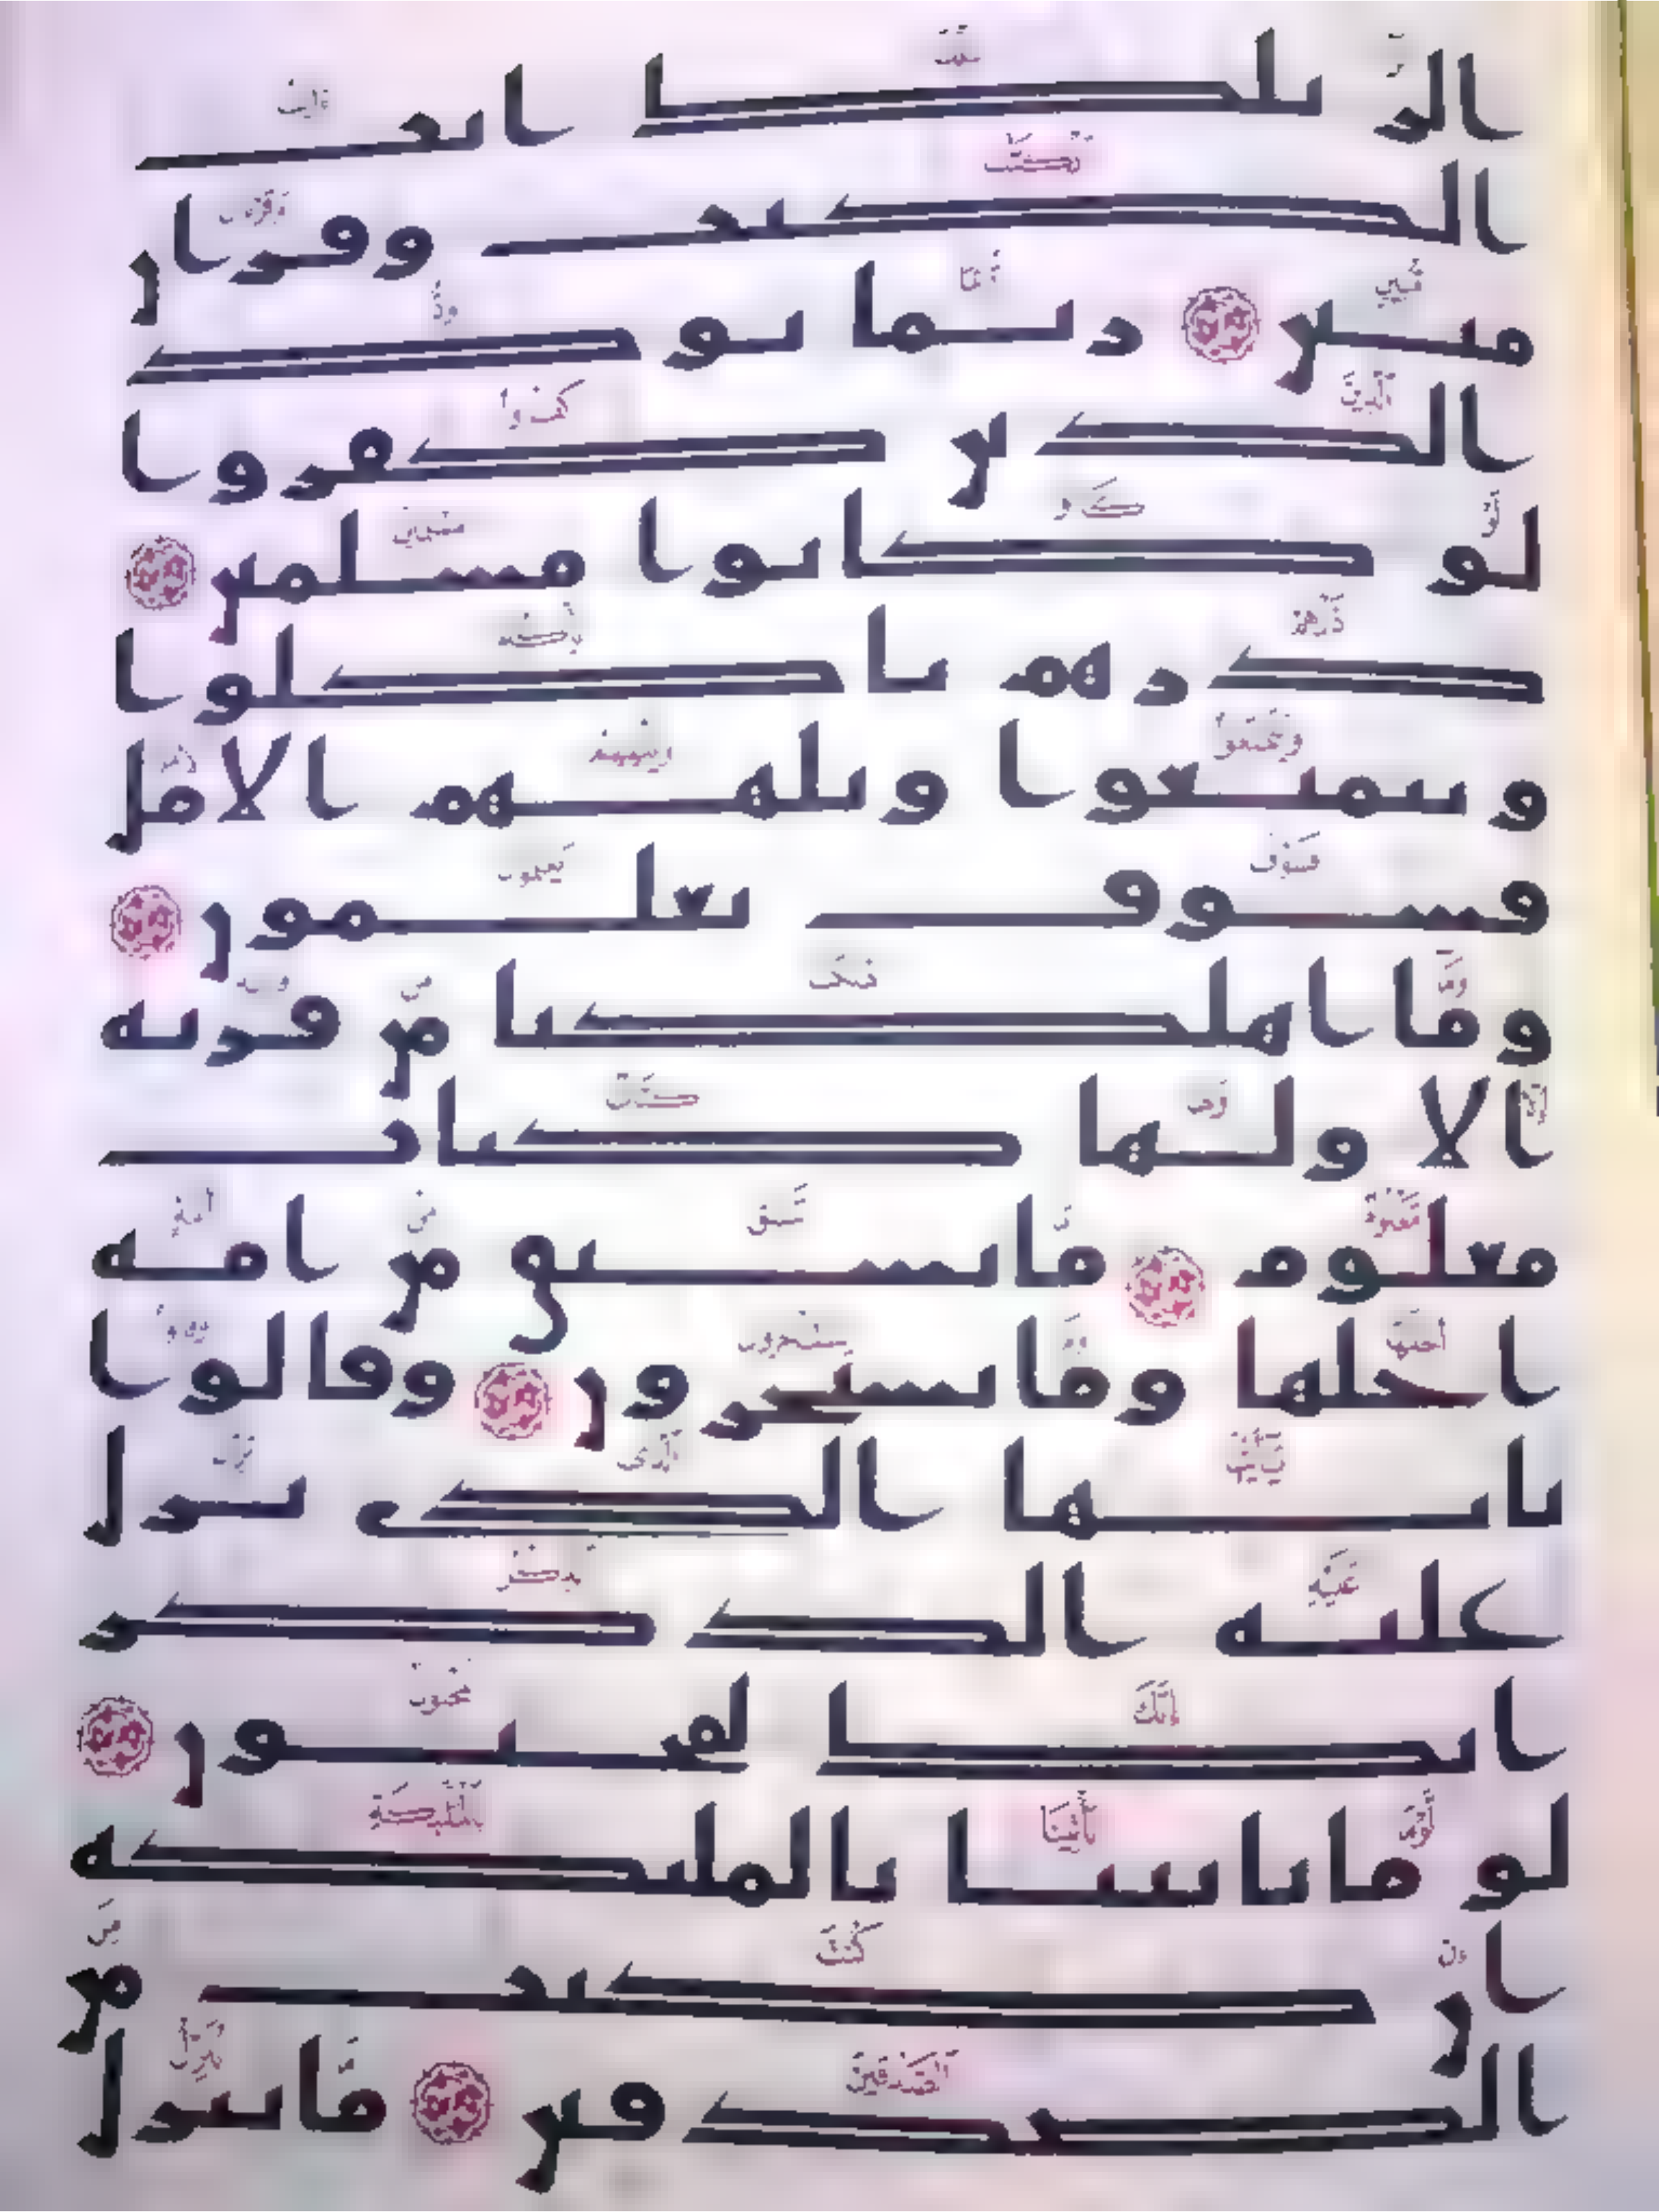 الر تلك ايت
الكتب وقران
مبين ربما يود
الذين كفروا
لو كانوا مسلمين
ذرهم ياكلوا
ويتمتعوا ويلههم الامل
فسوف يعلمون
وما اهلكنا من قريه
الا ولها كتاب
معلوم ما تسبق من امه
اجلها وما يستخرون وقالوا
يايها الذي نزل
عليه الذكر
انك لمجنون
لو ما تاتينا بالملئكه
ان كنت من
الصدقين ما ننزل